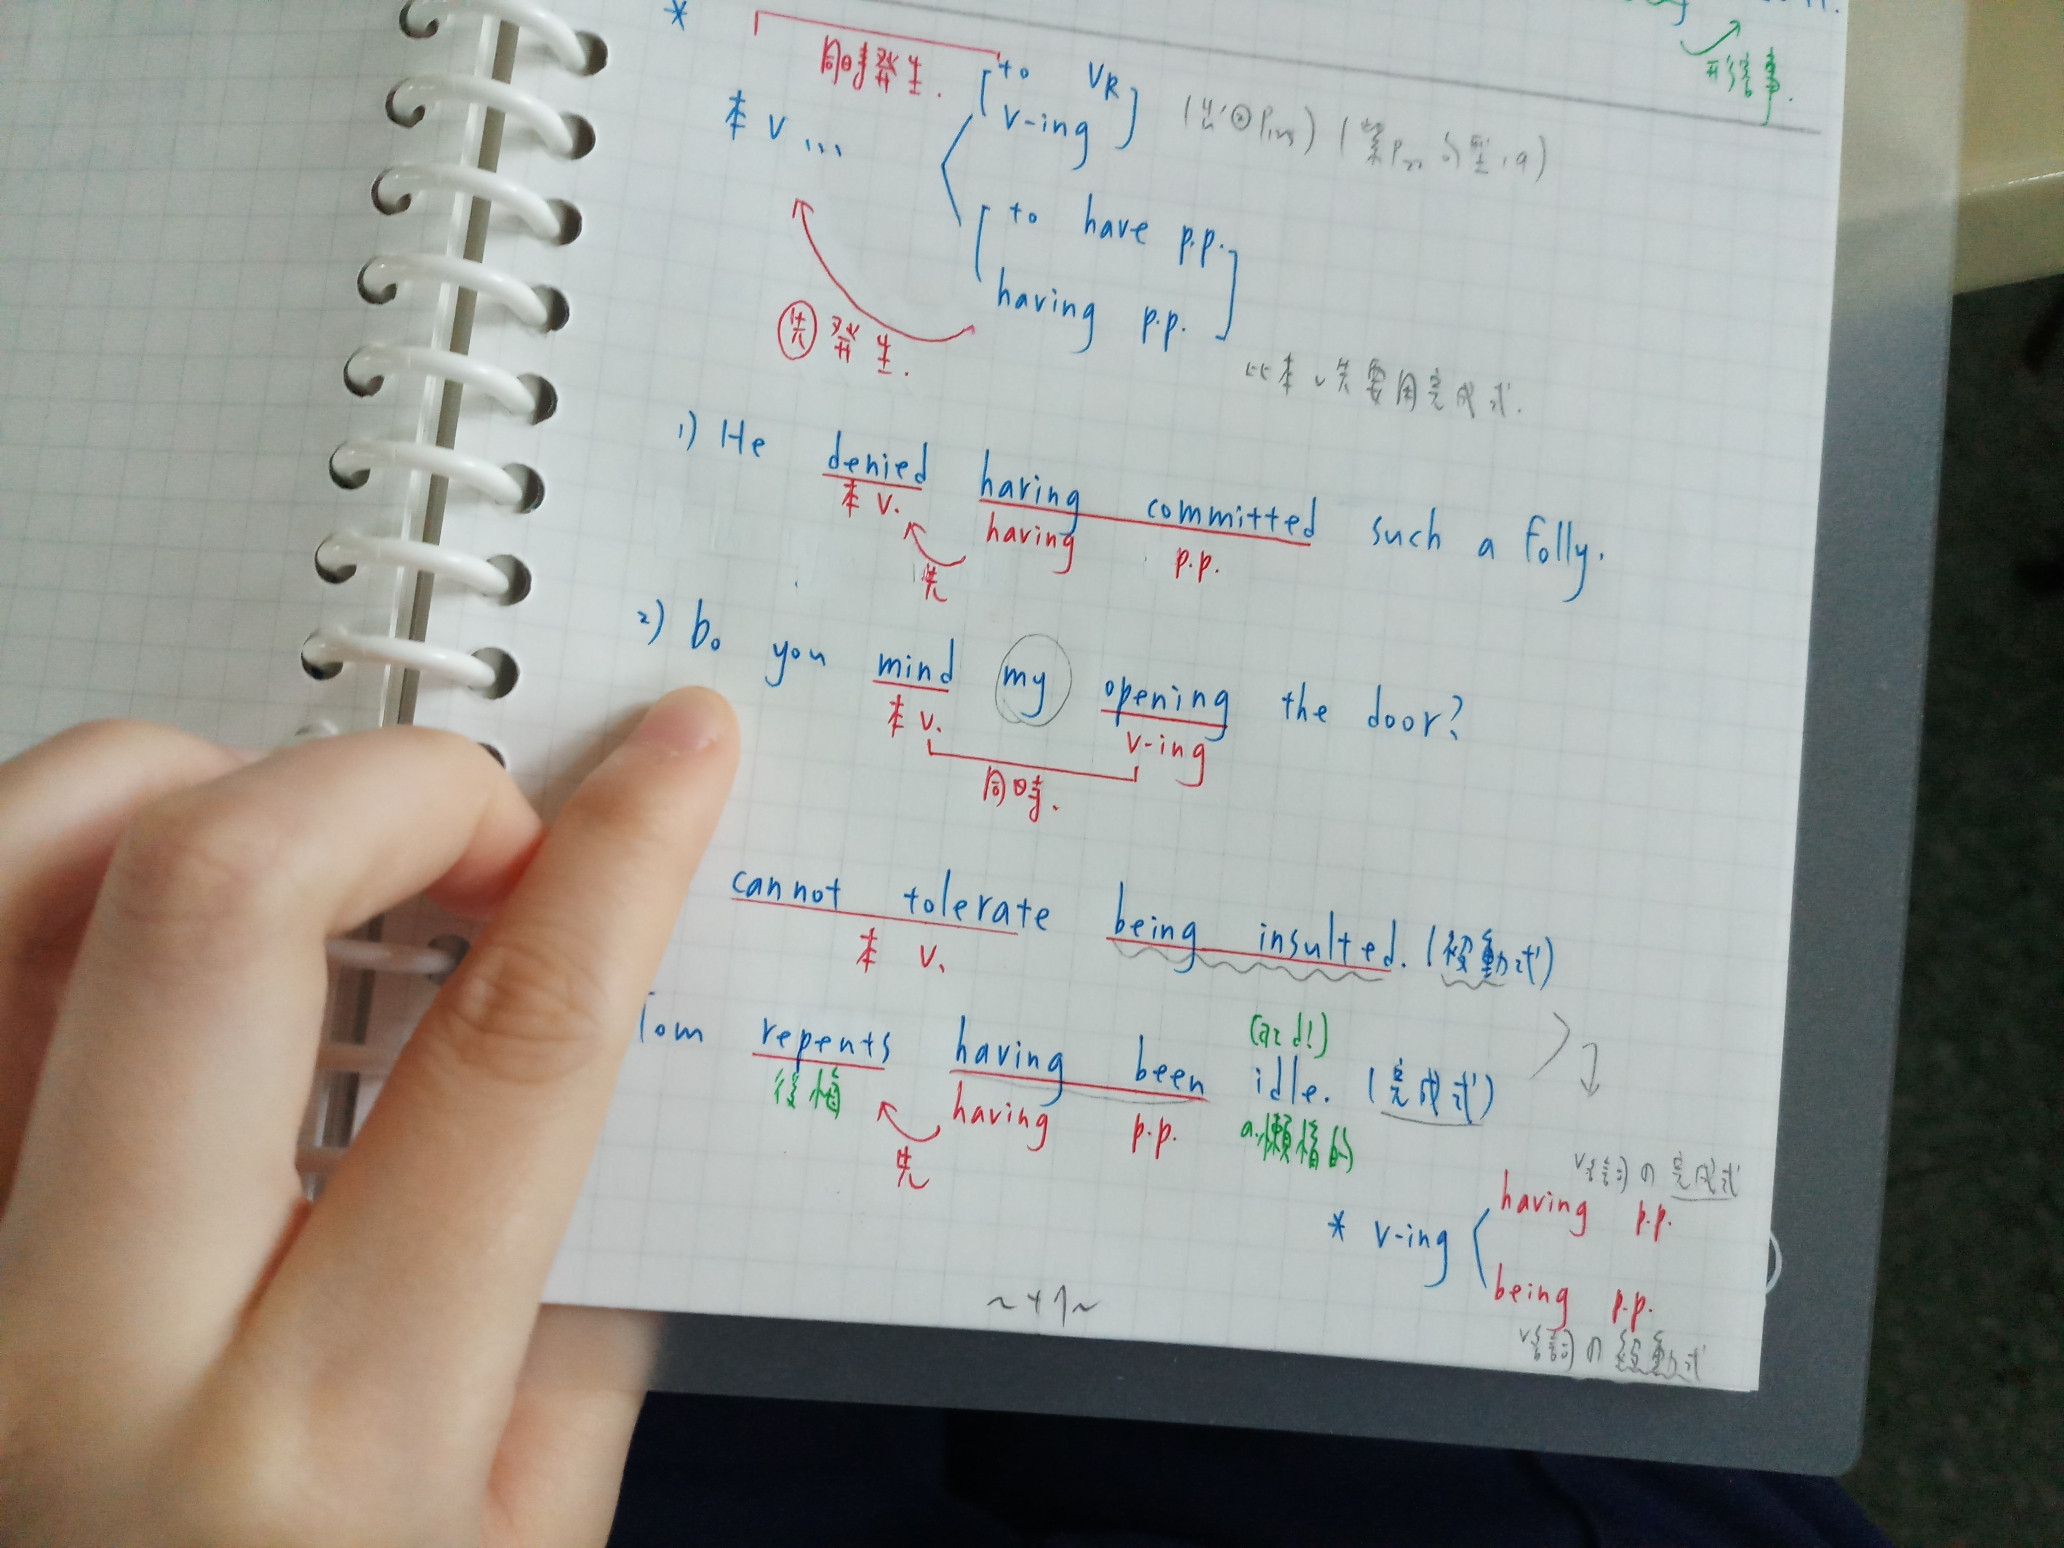 形容事.
*
同時發生.
to VR
本 V ... V-ing
to have p.p.
having p.p.
先發生.
比本 V 先要用完成式.
1) He denied having committed such a folly.
本 V. having p.p.
先
2) Do you mind my opening the door?
本 V. V-ing
同時.
cannot tolerate being insulted. (被動式)
本 V.
(ad!)
Tom repents having been idle. (完成式)
後悔 having p.p. a.懶惰的
先
の 完成式
having p.p.
* V-ing
being p.p.
の 被動式